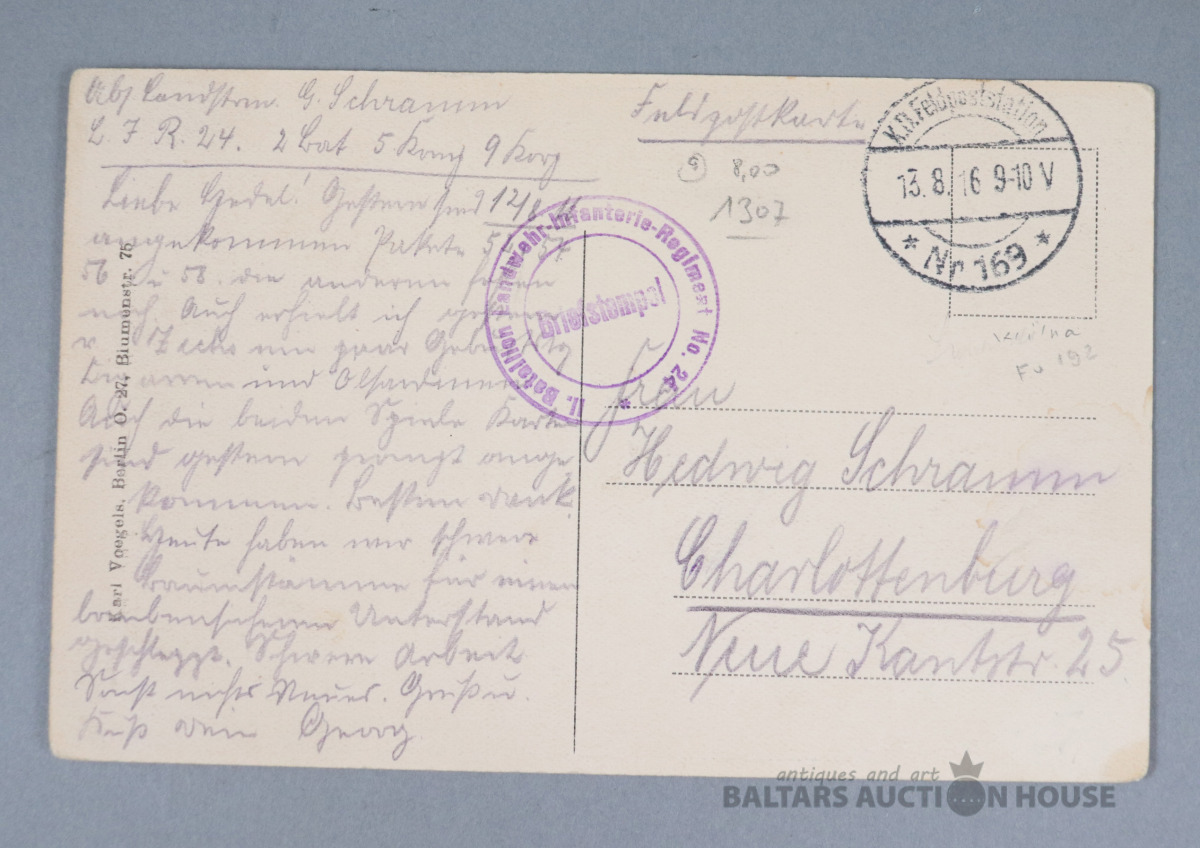 Abs. Landstrm. G. Schramm
L. I. R. 24. 2 Bat 5 Komp 9 Korp
Liebe Hedel! Gestern sind 12/8 16
angekommen Pakete 55 57
56 u 58. die anderen
noch. Auch erhielt ich gestern
ein paar
Zigarren und Ölsardinen
Auch die beiden Spiele Karten
sind gestern ange
kommen. Besten Dank
Heute haben wir schwere
Baumstämme für einen
bombensicheren Unterstand
geschleppt. Schwere Arbeit
Sonst nichts Neues. Gruß u.
Kuß Dein Georg
Karl Voegels, Berlin O. 27, Blumenstr. 75
Feldpostkarte
9 8,00
1307
K.D. Feldpoststation
13. 8. 16 9-10 V
* Nr 169 *
II. Bataillon Landwehr-Infanterie-Regiment No. 24 *
Briefstempel
Fu 192
Frau
Hedwig Schramm
Charlottenburg
Neue Kantstr. 25.
antiques and art
BALTARS AUCTION HOUSE